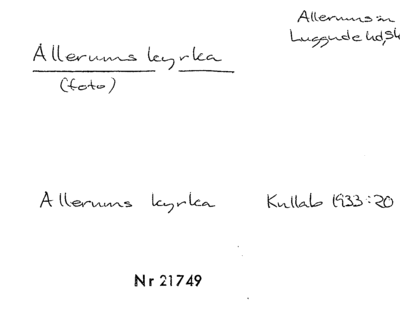 Allerums sn
Luggude hd, Sk
Allerums kyrka
(foto)
Allerums kyrka Kullab 1933:20
Nr 21749